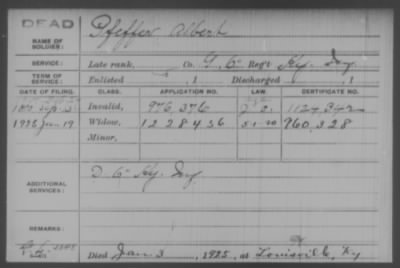 DEAD
NAME OF SOLDIER: Pfeffer Albert
SERVICE: Late rank, Co. G. 6" Reg't Ky. Inf.
TERM OF SERVICE: Enlisted , 1 Discharged , 1
DATE OF FILING. CLASS. APPLICATION NO. LAW. CERTIFICATE NO.
Invalid, 976,376 1124342
1925 Jan. 19 Widow, 1228436 5-1-20 960,328
Minor,
ADDITIONAL SERVICES: D. 6" Ky. Inf.
REMARKS:
Died Jan. 3, 1925, at Louisville, Ky